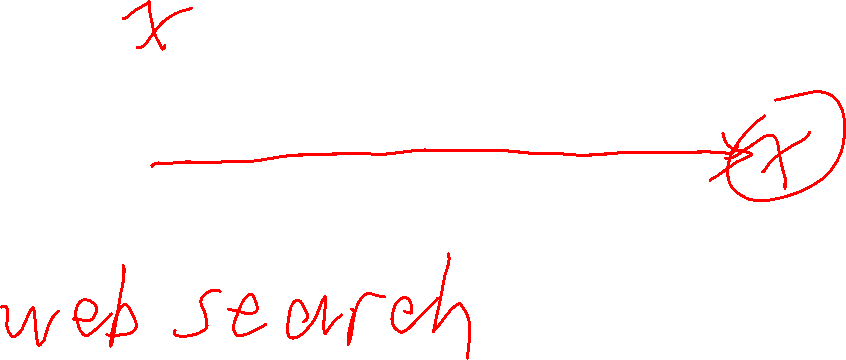 x
x
web search